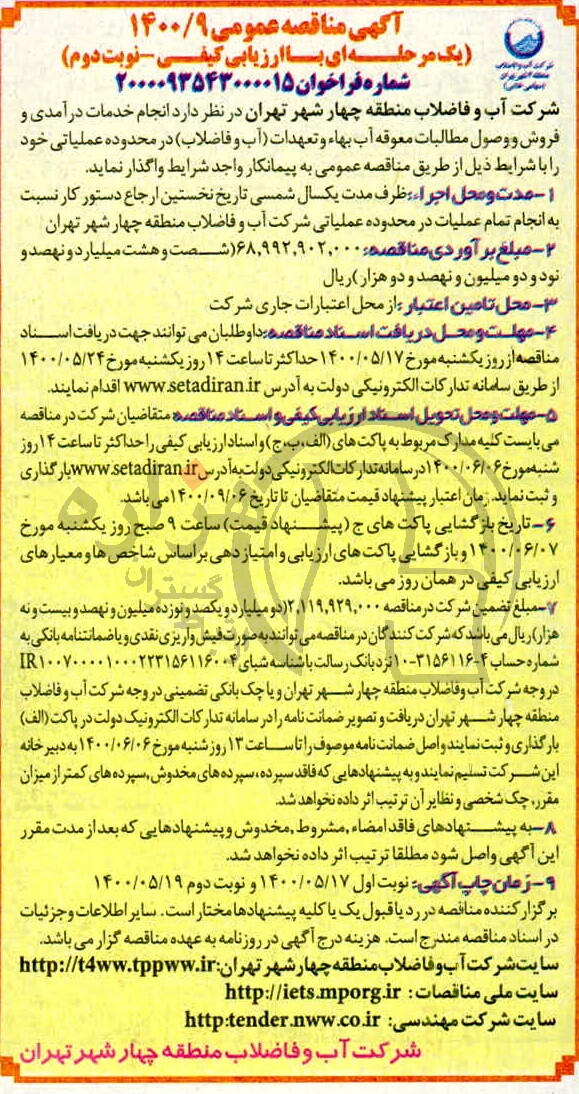 آگهی مناقصه عمومی ۱۴۰۰/۹
(یک مرحله ای با ارزیابی کیفی - نوبت دوم)
شماره فراخوان ۲۰۰۰۰۹۳۵۴۳۰۰۰۰۱۵
شرکت آب و فاضلاب
منطقه ۴ شهر تهران
(سهامی خاص)
شرکت آب و فاضلاب منطقه چهار شهر تهران در نظر دارد انجام خدمات درآمدی و
فروش و وصول مطالبات معوقه آب بهاء و تعهدات (آب و فاضلاب) در محدوده عملیاتی خود
را با شرایط ذیل از طریق مناقصه عمومی به پیمانکار واجد شرایط واگذار نماید.
۱-مدت و محل اجراء: ظرف مدت یکسال شمسی تاریخ نخستین ارجاع دستور کار نسبت
به انجام تمام عملیات در محدوده عملیاتی شرکت آب و فاضلاب منطقه چهار شهر تهران
۲-مبلغ برآوردی مناقصه: ۶۸,۹۹۲,۹۰۲,۰۰۰(شصت و هشت میلیارد و نهصد و
نود و دو میلیون و نهصد و دو هزار)ریال
۳-محل تامین اعتبار: از محل اعتبارات جاری شرکت
۴-مهلت و محل دریافت اسناد مناقصه: داوطلبان می توانند جهت دریافت اسناد
مناقصه از روز یکشنبه مورخ ۱۴۰۰/۰۵/۱۷ حداکثر تا ساعت ۱۴ روز یکشنبه مورخ ۱۴۰۰/۰۵/۲۴
از طریق سامانه تدارکات الکترونیکی دولت به آدرس www.setadiran.ir اقدام نمایند.
۵-مهلت و محل تحویل اسناد ارزیابی کیفی و اسناد مناقصه: متقاضیان شرکت در مناقصه
می بایست کلیه مدارک مربوط به پاکت های (الف،ب،ج) و اسناد ارزیابی کیفی را حداکثر تا ساعت ۱۴ روز
شنبه مورخ ۱۴۰۰/۰۶/۰۶ در سامانه تدارکات الکترونیکی دولت به آدرس www.setadiran.ir بارگذاری
و ثبت نماید. زمان اعتبار پیشنهاد قیمت متقاضیان تا تاریخ ۱۴۰۰/۰۹/۰۶ می باشد.
۶-تاریخ بازگشایی پاکت های ج (پیشنهاد قیمت) ساعت ۹ صبح روز یکشنبه مورخ
۱۴۰۰/۰۶/۰۷ و بازگشایی پاکت های ارزیابی و امتیاز دهی بر اساس شاخص ها و معیارهای
ارزیابی کیفی در همان روز می باشد.
۷-مبلغ تضمین شرکت در مناقصه ۲,۱۱۹,۹۲۹,۰۰۰(دو میلیارد و یکصد و نوزده میلیون و نهصد و بیست و نه
هزار) ریال می باشد که شرکت کنندگان در مناقصه می توانند به صورت فیش واریزی نقدی و یا ضمانتنامه بانکی به
شماره حساب ۴-۳۱۵۶۱۱۶-۱۰ نزد بانک رسالت با شناسه شبای IR۱۰۰۷۰۰۰۰۱۰۰۰۲۲۳۱۵۶۱۱۶۰۰۴
در وجه شرکت آب و فاضلاب منطقه چهار شهر تهران و یا چک بانکی تضمینی در وجه شرکت آب و فاضلاب
منطقه چهار شهر تهران دریافت و تصویر ضمانت نامه را در سامانه تدارکات الکترونیک دولت در پاکت (الف)
بارگذاری و ثبت نمایند و اصل ضمانت نامه موصوف را تا ساعت ۱۳ روز شنبه مورخ ۱۴۰۰/۰۶/۰۶ به دبیرخانه
این شرکت تسلیم نمایند و به پیشنهادهایی که فاقد سپرده، سپرده های مخدوش, سپرده های کمتر از میزان
مقرر, چک شخصی و نظایر آن ترتیب اثر داده نخواهد شد.
۸-به پیشنهادهای فاقد امضاء, مشروط, مخدوش و پیشنهادهایی که بعد از مدت مقرر
این آگهی واصل شود مطلقا ترتیب اثر داده نخواهد شد.
۹-زمان چاپ آگهی: نوبت اول ۱۴۰۰/۰۵/۱۷ و نوبت دوم ۱۴۰۰/۰۵/۱۹
برگزار کننده مناقصه در رد یا قبول یک یا کلیه پیشنهادها مختار است. سایر اطلاعات و جزئیات
در اسناد مناقصه مندرج است. هزینه درج آگهی در روزنامه به عهده مناقصه گزار می باشد.
سایت شرکت آب و فاضلاب منطقه چهار شهر تهران: http://t4ww.tppww.ir
سایت ملی مناقصات: http://iets.mporg.ir
سایت شرکت مهندسی: http:tender.nww.co.ir
شرکت آب و فاضلاب منطقه چهار شهر تهران